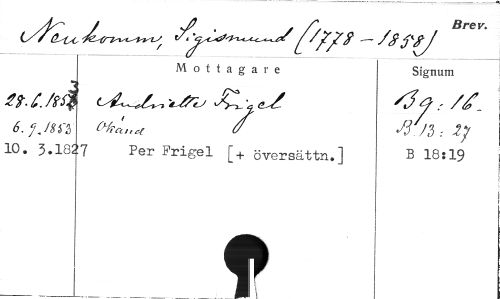 Brev.
Neukomm, Sigismund (1778-1858)
Mottagare Signum
28.6.1853 Andriette Frigel B9:16.
6.9.1853 Okänd B.13:27
10. 3.1827 Per Frigel [+ översättn.] B 18:19